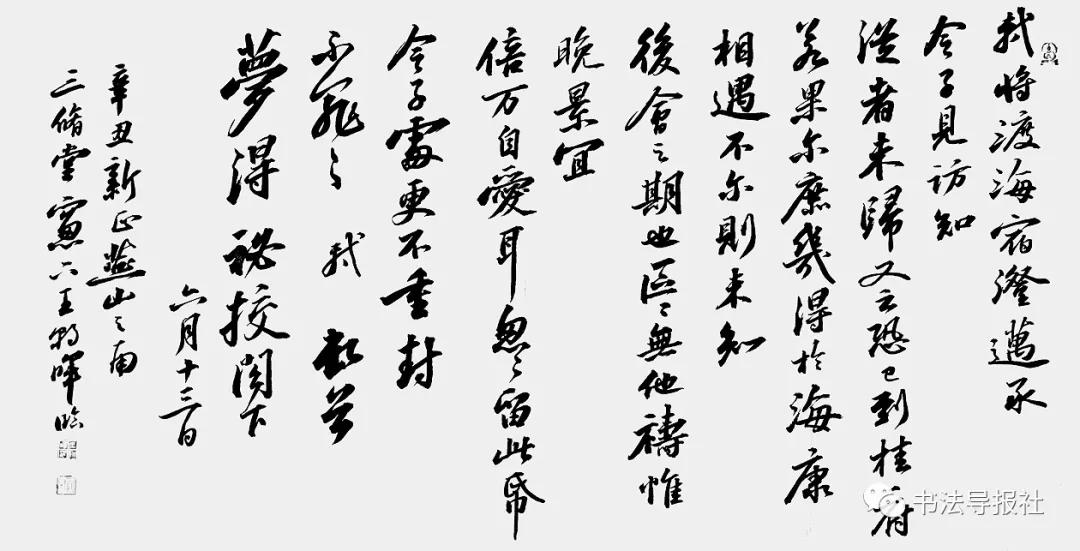 軾將渡海宿澄邁承
令子見訪知
從者未歸又云恐已到桂府
若果尔庶幾得於海康
相遇不尔則未知
後會之期也區區無他禱惟
晚景宜
倍万自愛耳忽忽留此帋
令子處更不重封
不罪不罪軾頓首
夢得祕挍閣下
六月十三日
辛丑新正燕山之南
三脩堂窗下王
暉臨
书法导报社